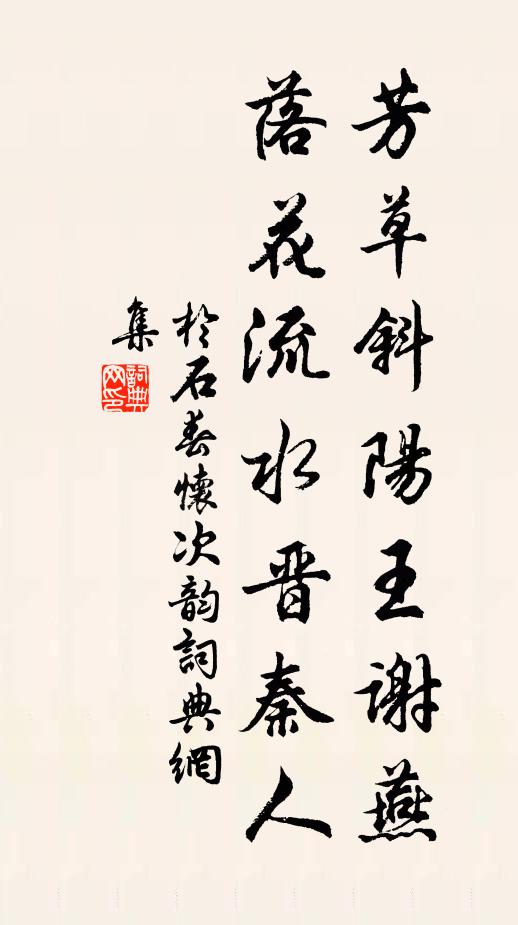 芳草斜陽王谢燕
落花流水晋秦人
於石春懷次韵詞典網
集
詞典网印